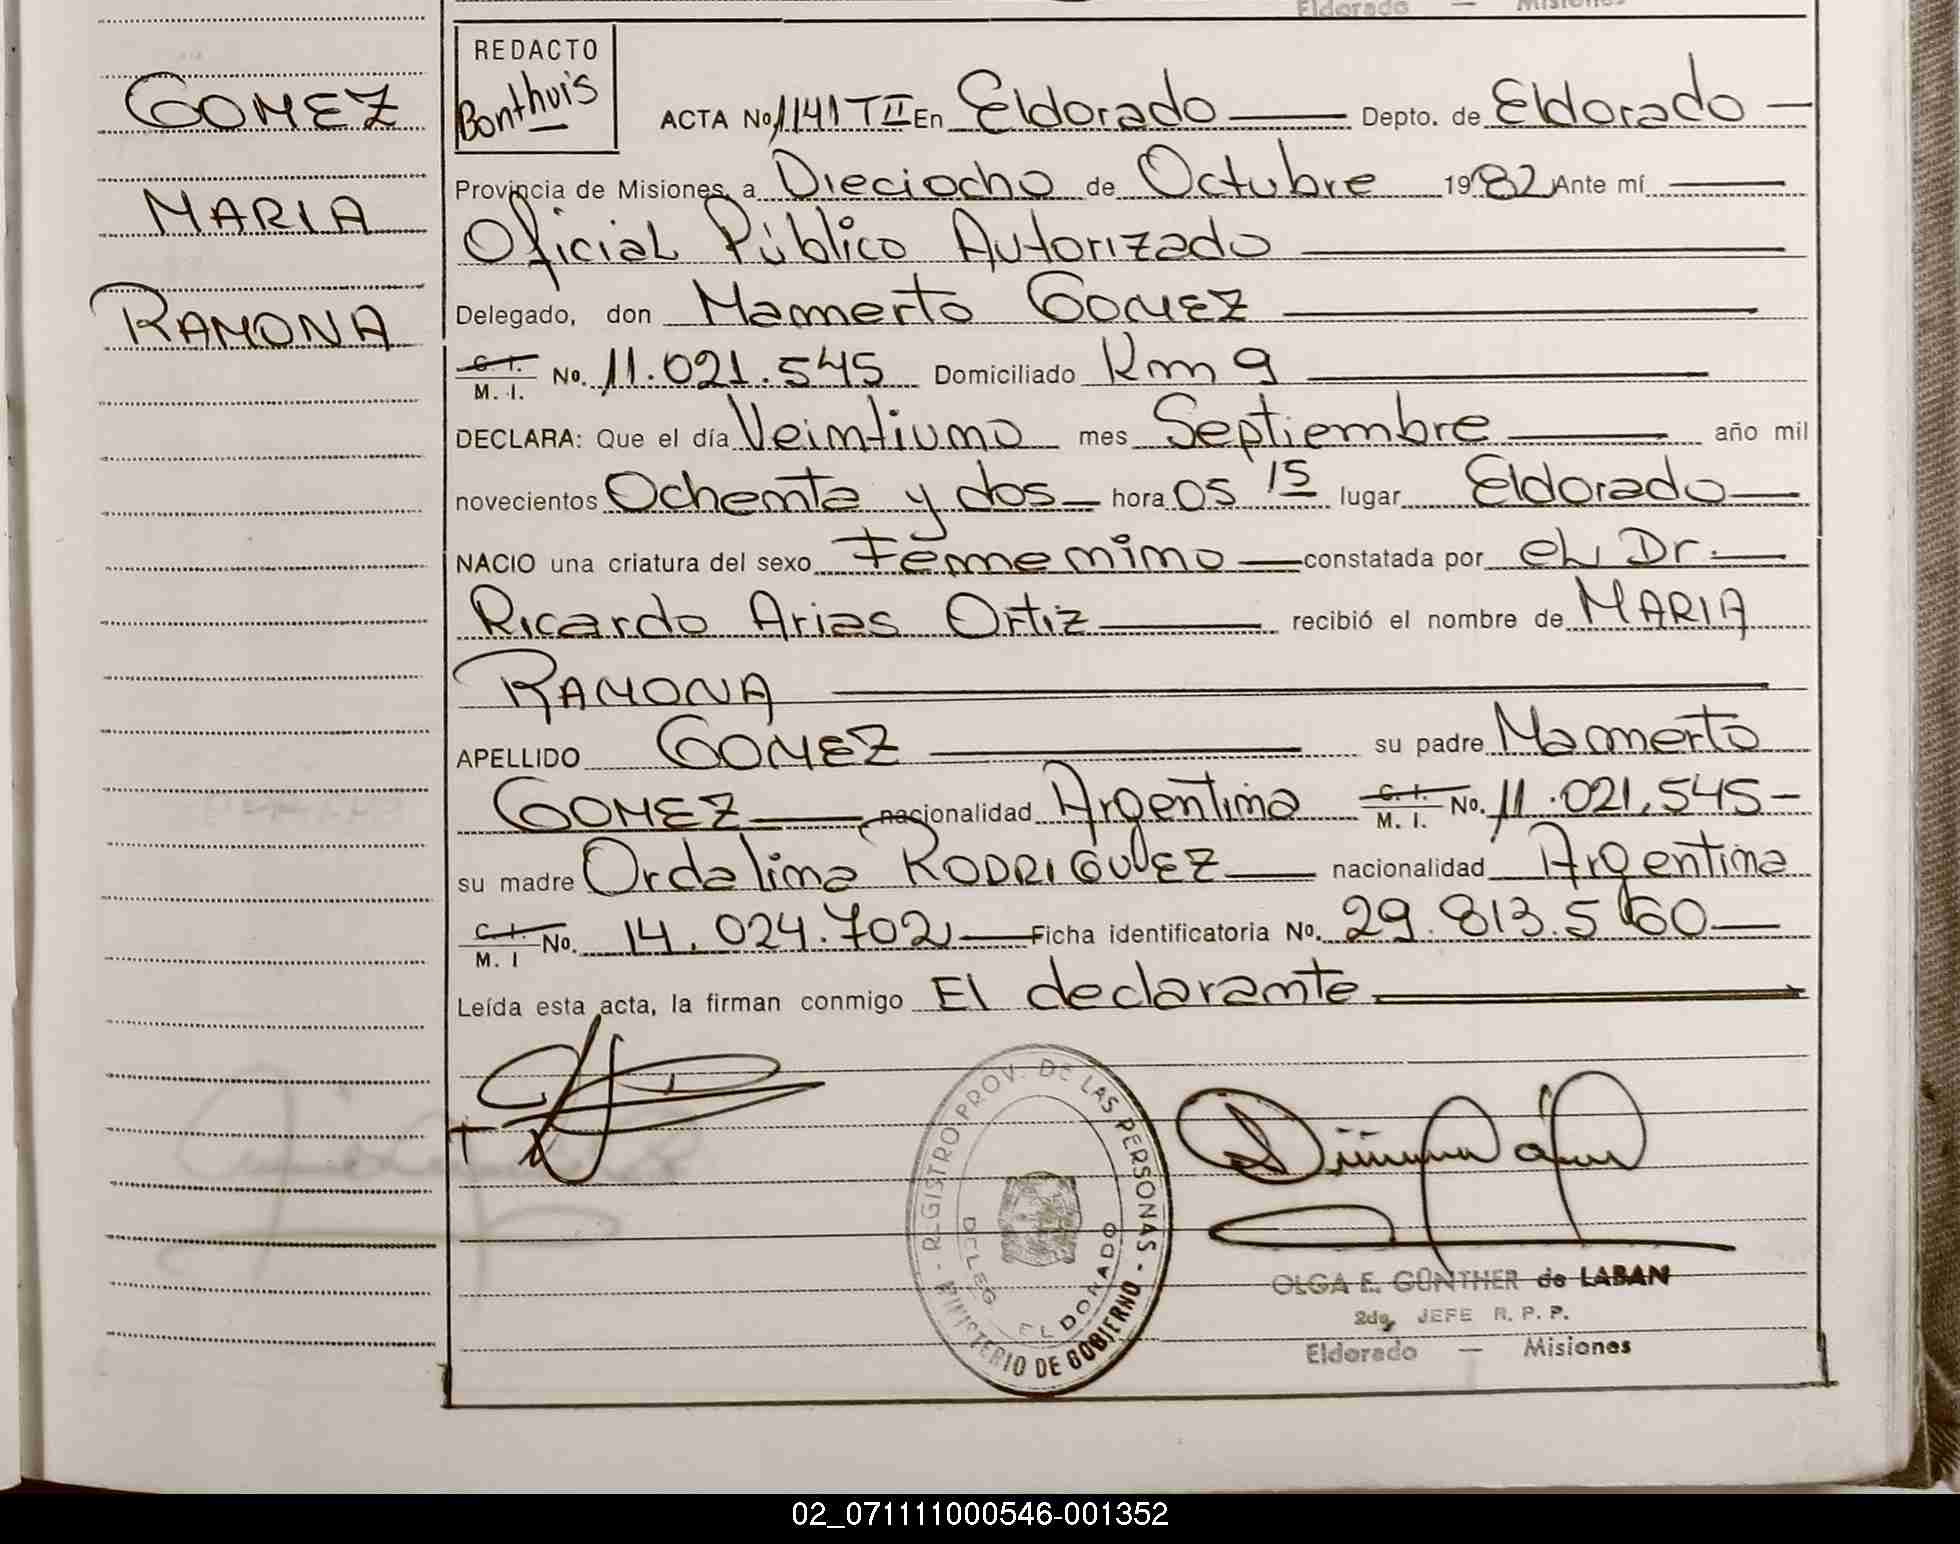 Eldorado — Misiones
GOMEZ
MARIA
RAMONA
REDACTO
Bonthuis
ACTA No. 1141 T II En Eldorado — Depto. de Eldorado —
Provincia de Misiones, a Dieciocho de Octubre 1982 Ante mí —
Oficial Público Autorizado —
Delegado, don Mamerto GOMEZ —
C. I. M. I. No. 11.021.545 Domiciliado Km 9 —
DECLARA: Que el día Veintiuno mes Septiembre — año mil
novecientos Ochenta y dos — hora 05 15 lugar Eldorado —
NACIO una criatura del sexo Femenino — constatada por el Dr. —
Ricardo Arias Ortiz — recibió el nombre de MARIA
RAMONA —
APELLIDO GOMEZ — su padre Mamerto
GOMEZ — nacionalidad Argentina C. I. M. I. No. 11.021.545 —
su madre Ordalina RODRIGUEZ — nacionalidad Argentina
C. I. M. I No. 14.024.702 — Ficha identificatoria No. 29.813.560 —
Leída esta acta, la firman conmigo El declarante —
REGISTRO PROV. DE LAS PERSONAS - MINISTERIO DE GOBIERNO -
DELEG ELDORADO
OLGA E. GÜNTHER de LABAN
2da. JEFE R. P. P.
Eldorado — Misiones
02_071111000546-001352